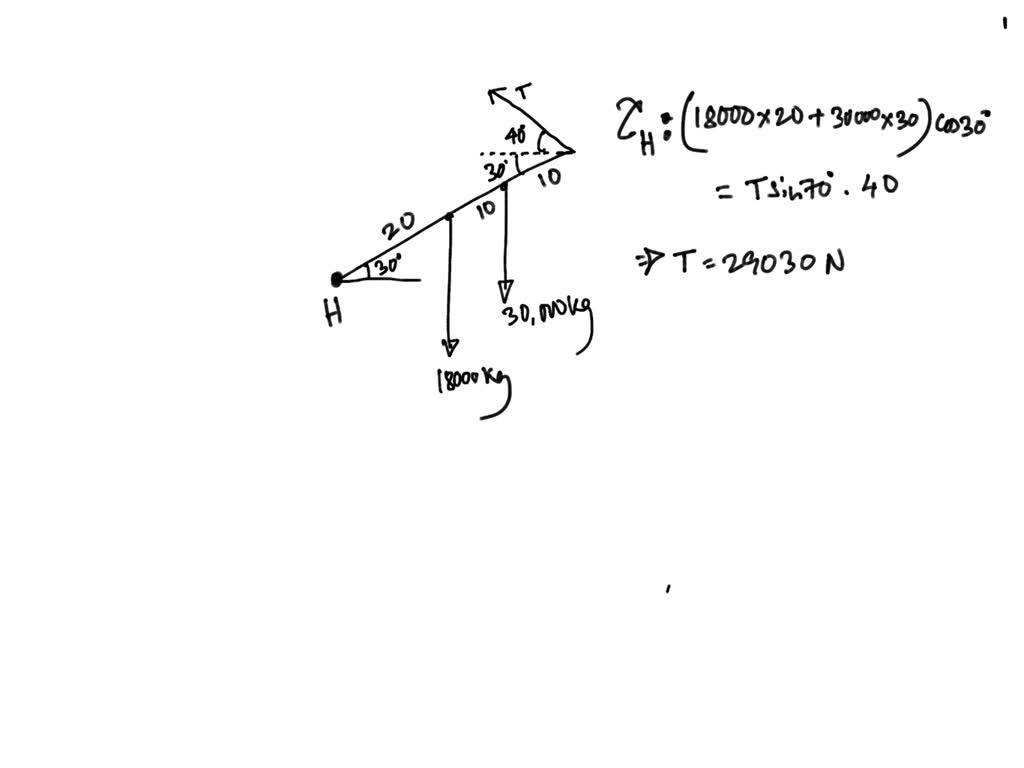 T
40°
30°
10
10
20
30°
H
30,000kg
18000kg
τ_H : (18000×20 + 30000×30) cos30°
= T sin70° . 40
⇒ T = 29030 N